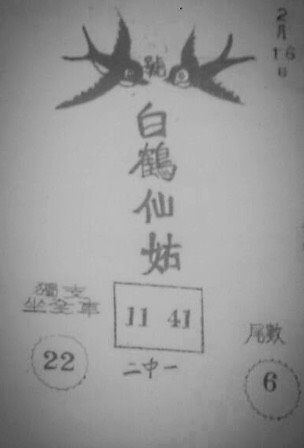 2月
16
日
號
白鶴仙姑
獨支
坐全車
11 41
二中一
22
尾數
6